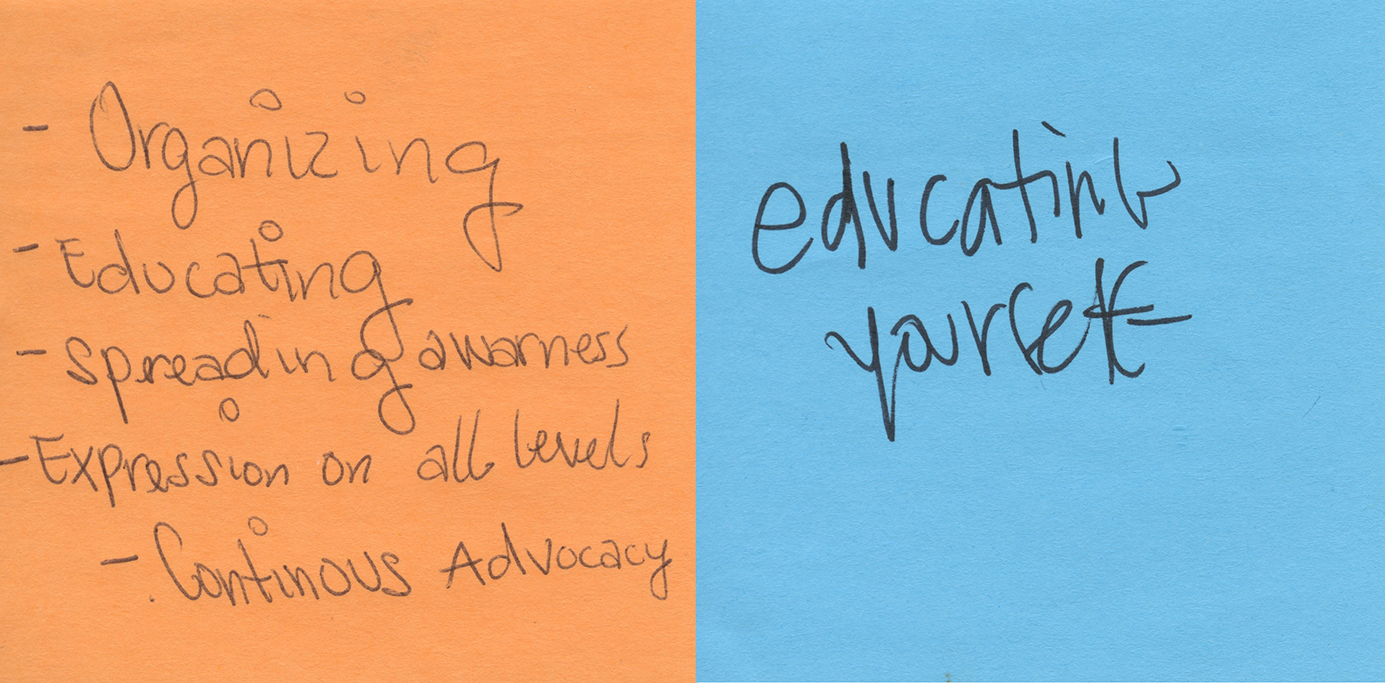 - Organizing
- Educating
- Spreading awarness
- Expression on all levels
- Continous Advocacy
educating
yourself